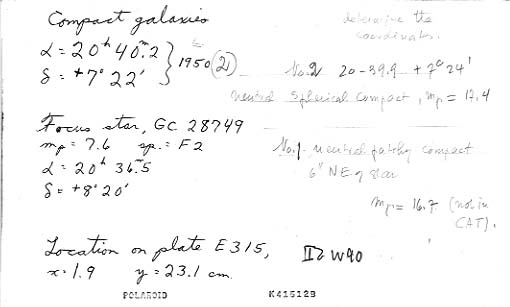 Compact galaxies
α = 20ʰ 40.ᵐ2 } 1950 (2)
δ = +7° 22'
determine the
coordinates.
No. 2 20-39.9 +7° 24'
neutral spherical compact, mp = 17.4
Focus star, GC 28749
mp = 7.6 sp. = F2
α = 20ʰ 36.ᵐ5
δ = +8° 20'
No. 1 - neutral patchy compact
6" NE of star
mp = 16.7 (not in
CAT).
Location on plate E315,
x = 1.9 y = 23.1 cm.
II Z W 90
POLAROID K416129